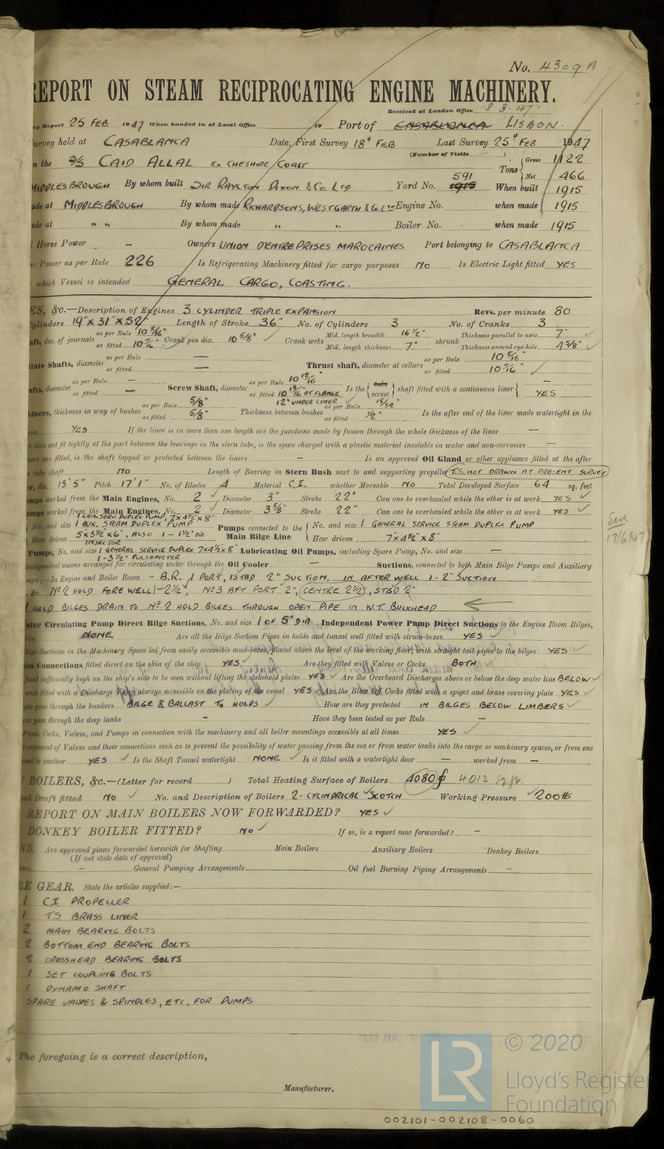 No. 4309 A
REPORT ON STEAM RECIPROCATING ENGINE MACHINERY.
Received at London Office 3.3.47
Report 25 FEB 1947 When handed in at Local Office 19 Port of CASABLANCA LISBON.
Survey held at CASABLANCA Date, First Survey 18th FEB Last Survey 25th FEB 1947
(Number of Visits )
on the S/S CAID ALLAL EX CHESHIRE COAST Tons Gross 1122
Net 466
MIDDLESBROUGH By whom built SIR RAYLTON DIXON & Co. Ltd Yard No. 591 1915 When built 1915
made at MIDDLESBROUGH By whom made RICHARDSONS, WESTGARTH & Co. Ltd Engine No. when made 1915
made at " " By whom made " " Boiler No. when made 1915
Horse Power – Owners UNION D'ENTREPRISES MAROCAINES Port belonging to CASABLANCA
Power as per Rule 226 Is Refrigerating Machinery fitted for cargo purposes NO Is Electric Light fitted YES
which Vessel is intended GENERAL CARGO, COASTING.
ES, &c.—Description of Engines 3 CYLINDER TRIPLE EXPANSION Revs. per minute 80
Cylinders 19" x 31" x 52" Length of Stroke 36" No. of Cylinders 3 No. of Cranks 3
dia. of journals as per Rule 10 5/16" as fitted Crank pin dia. 10 5/8" Crank webs Mid. length breadth 16 1/2" Mid. length thickness 7" shrunk Thickness parallel to axis 7" Thickness around eye-hole 4 5/8"
diameter as per Rule – as fitted – Thrust shaft, diameter at collars as per Rule 10 5/16" as fitted
diameter as per Rule – as fitted – Screw Shaft, diameter as per Rule as fitted AT FLANGE 12" UNDER LINER Is the tube screw shaft fitted with a continuous liner YES
Liners, thickness in way of bushes as per Rule 5/8" as fitted 5/8" Thickness between bushes as per Rule as fitted 1/2" Is the after end of the liner made watertight in the
YES If the liner is in more than one length are the junctions made by fusion through the whole thickness of the liner –
does not fit tightly at the part between the bearings in the stern tube, is the space charged with a plastic material insoluble in water and non-corrosive –
are fitted, is the shaft lapped or protected between the liners – Is an approved Oil Gland or other appliance fitted at the after
tube shaft NO Length of Bearing in Stern Bush next to and supporting propeller T.S. NOT DRAWN AT PRESENT SURVEY
dia. 13' 5" Pitch 17' 1" No. of Blades 4 Material C.I. whether Moveable NO Total Developed Surface 64 sq. feet
worked from the Main Engines, No. 2 Diameter 3" Stroke 22" Can one be overhauled while the other is at work YES
worked from the Main Engines, No. 2 Diameter Stroke 22" Can one be overhauled while the other is at work YES
No. and size 1 GEN SERV DUPLEX PUMP 7 x 4 1/2 x 8" 1 AUX. STEAM DUPLEX PUMP Pumps connected to the Main Bilge Line No. and size 1 GENERAL SERVICE STEAM DUPLEX PUMP
How driven 7" x 4 1/2" x 8"
Pumps, No. and size 1 GENERAL SERVICE DUPLEX 7 x 4 1/2 x 8" Lubricating Oil Pumps, including Spare Pump, No. and size –
means arranged for circulating water through the Oil Cooler – Suctions, connected to both Main Bilge Pumps and Auxiliary
In Engine and Boiler Room – B.R. 1 PORT, 1 STBD 2" SUCTION, IN AFTER WELL 1 - 2" SUCTION
No 2 HOLD FORE WELL 1 - 2 1/2", No 3 AFT PORT 2", CENTRE 2 1/2", STBD 2"
HOLD BILGES DRAIN TO No. 2 HOLD BILGES THROUGH OPEN PIPE IN W.T. BULKHEAD
Water Circulating Pump Direct Bilge Suctions, No. and size 1 OF 5" DIA. Independent Power Pump Direct Suctions to the Engine Room Bilges,
NONE Are all the Bilge Suction Pipes in holds and tunnel well fitted with strum-boxes YES
Bilge Suctions in the Machinery Space led from easily accessible mud-boxes, placed above the level of the working floor, with straight tail pipes to the bilges YES
Connections fitted direct on the skin of the ship YES Are they fitted with Valves or Cocks BOTH
sufficiently high on the ship's side to be seen without lifting the stokehold plates YES Are the Overboard Discharges above or below the deep water line BELOW
fitted with a Discharge Valve always accessible on the plating of the vessel YES Are the Blow Off Cocks fitted with a spigot and brass covering plate YES
pass through the bunkers BILGE & BALLAST TO HOLDS How are they protected IN BILGES BELOW LIMBERS
pass through the deep tanks – Have they been tested as per Rule –
Pipes, Cocks, Valves, and Pumps in connection with the machinery and all boiler mountings accessible at all times YES
arrangement of Valves and their connections such as to prevent the possibility of water passing from the sea or from water tanks into the cargo or machinery spaces, or from one
to another YES Is the Shaft Tunnel watertight NONE Is it fitted with a watertight door – worked from –
BOILERS, &c.—(Letter for record ) Total Heating Surface of Boilers 4080 4012 sq ft
Draft fitted NO No. and Description of Boilers 2 - CYLINDRICAL SCOTCH Working Pressure 200 lb
REPORT ON MAIN BOILERS NOW FORWARDED? YES
DONKEY BOILER FITTED? NO If so, is a report now forwarded? –
Are approved plans forwarded herewith for Shafting Main Boilers Auxiliary Boilers Donkey Boilers
(If not state date of approval)
General Pumping Arrangements Oil fuel Burning Piping Arrangements –
RE GEAR. State the articles supplied:—
1 C.I. PROPELLER
1 T.S. BRASS LINER
2 MAIN BEARING BOLTS
2 BOTTOM END BEARING BOLTS
2 CROSSHEAD BEARING BOLTS
1 SET COUPLING BOLTS
1 DYNAMO SHAFT
SPARE VALVES & SPINDLES, ETC, FOR PUMPS
The foregoing is a correct description,
Manufacturer.
LR © 2020
Lloyd's Register
Foundation
002101-002108-0060